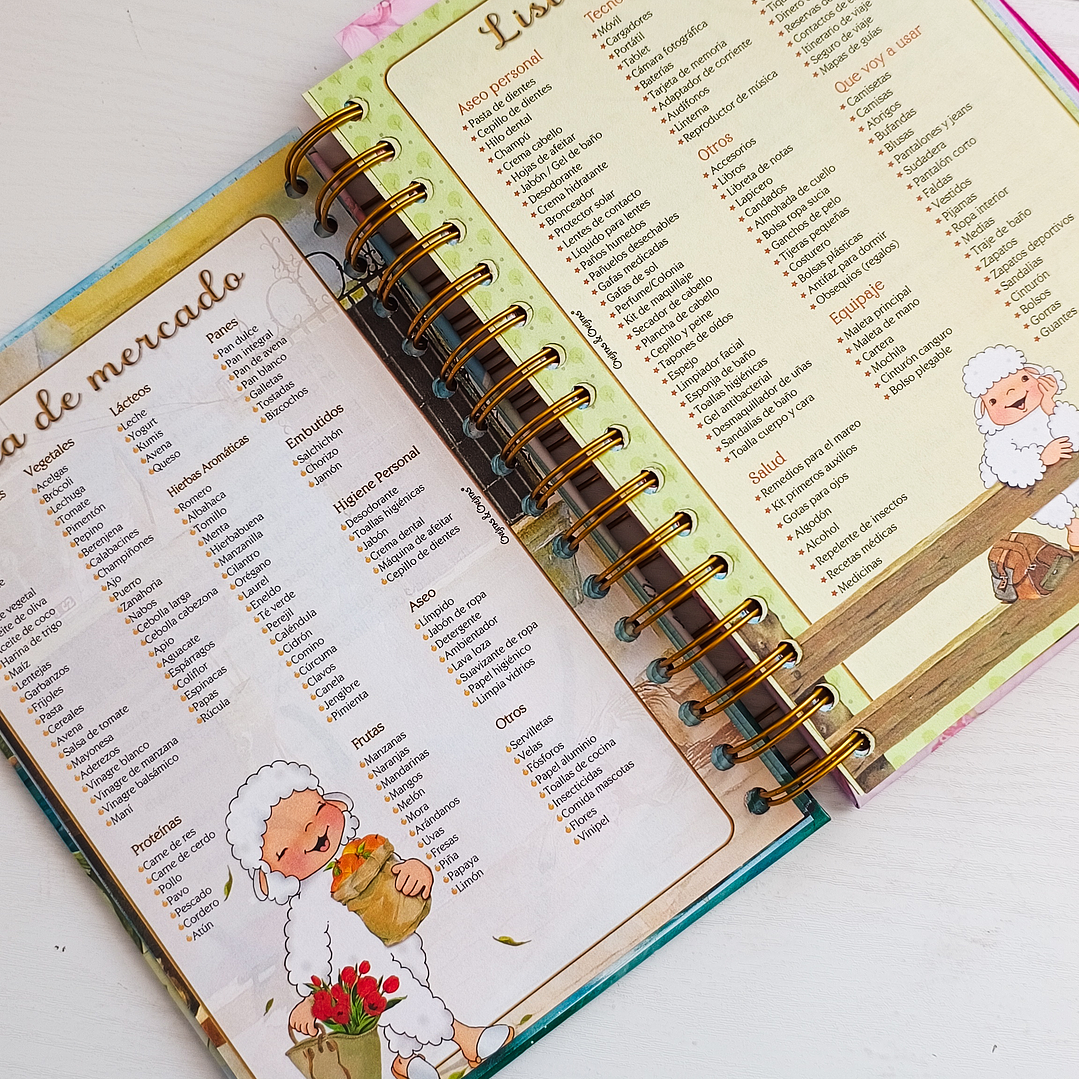 a de mercado
e vegetal
eite de oliva
ceite de coco
Harina de trigo
Maíz
Lentejas
Garbanzos
Frijoles
Pasta
Cereales
Avena
Salsa de tomate
Mayonesa
Aderezos
Vinagre blanco
Vinagre de manzana
Vinagre balsámico
Maní
Proteínas
Carne de res
Carne de cerdo
Pollo
Pavo
Pescado
Cordero
Atún
Vegetales
Acelgas
Brócoli
Lechuga
Tomate
Pimentón
Pepino
Berenjena
Calabacines
Champiñones
Ajo
Puerro
Zanahoria
Nabos
Cebolla larga
Cebolla cabezona
Apio
Aguacate
Espárragos
Coliflor
Espinacas
Papas
Rúcula
Lácteos
Leche
Yogurt
Kumis
Avena
Queso
Hierbas Aromáticas
Romero
Albahaca
Tomillo
Menta
Hierbabuena
Manzanilla
Cilantro
Orégano
Laurel
Eneldo
Té verde
Perejil
Caléndula
Cidrón
Comino
Cúrcuma
Clavos
Canela
Jengibre
Pimienta
Frutas
Manzanas
Naranjas
Mandarinas
Mangos
Melón
Mora
Arándanos
Uvas
Fresas
Piña
Papaya
Limón
Panes
Pan dulce
Pan integral
Pan de avena
Pan blanco
Galletas
Tostadas
Bizcochos
Embutidos
Salchichón
Chorizo
Jamón
Higiene Personal
Desodorante
Toallas higiénicas
Jabón
Crema dental
Máquina de afeitar
Cepillo de dientes
Aseo
Límpido
Jabón de ropa
Detergente
Ambientador
Lava loza
Suavizante de ropa
Papel higiénico
Limpia vidrios
Otros
Servilletas
Velas
Fósforos
Papel aluminio
Toallas de cocina
Insecticidas
Comida mascotas
Flores
Vinipel
Aseo personal
Pasta de dientes
Cepillo de dientes
Hilo dental
Champú
Crema cabello
Hojas de afeitar
Jabón / Gel de baño
Desodorante
Crema hidratante
Bronceador
Protector solar
Lentes de contacto
Líquido para lentes
Paños humedos
Pañuelos desechables
Gafas medicadas
Gafas de sol
Perfume/Colonia
Kit de maquillaje
Secador de cabello
Plancha de cabello
Cepillo y peine
Tapones de oídos
Espejo
Limpiador facial
Esponja de baño
Toallas higiénicas
Gel antibacterial
Desmaquillador de uñas
Sandalias de baño
Toalla cuerpo y cara
Salud
Remedios para el mareo
Kit primeros auxilios
Gotas para ojos
Algodón
Alcohol
Repelente de insectos
Recetas médicas
Medicinas
Móvil
Cargadores
Portátil
Tablet
Cámara fotográfica
Baterías
Tarjeta de memoria
Adaptador de corriente
Audífonos
Linterna
Reproductor de música
Otros
Accesorios
Libros
Libreta de notas
Lapicero
Candados
Almohada de cuello
Bolsa ropa sucia
Ganchos de pelo
Tijeras pequeñas
Costurero
Bolsas plásticas
Antifaz para dormir
Obsequios (regalos)
Equipaje
Maleta principal
Maleta de mano
Cartera
Mochila
Cinturón canguro
Bolso plegable
Itinerario de viaje
Seguro de viaje
Mapas de guías
Que voy a usar
Camisetas
Camisas
Abrigos
Bufandas
Blusas
Pantalones y jeans
Sudadera
Pantalón corto
Faldas
Vestidos
Pijamas
Ropa interior
Medias
Traje de baño
Zapatos
Zapatos deportivos
Sandalias
Cinturón
Bolsos
Gorras
Guantes